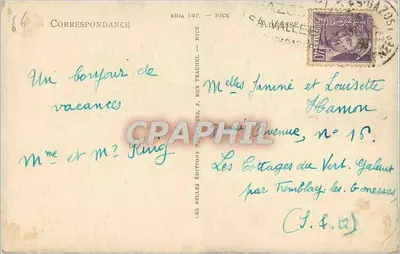 66
CORRESPONDANCE
ADIA IMP. - NICE
ADRESSE
Un bonjour de
vacances
Mme et Mr King
LES BELLES ÉDITIONS
RUE TRACHEL - NICE
Melles Janine et Louisette
Hamon
Avenue, No 16.
Les Cottages du Vert Galant
par Tremblay les Gonesses
(S. & O)
CPARHIL